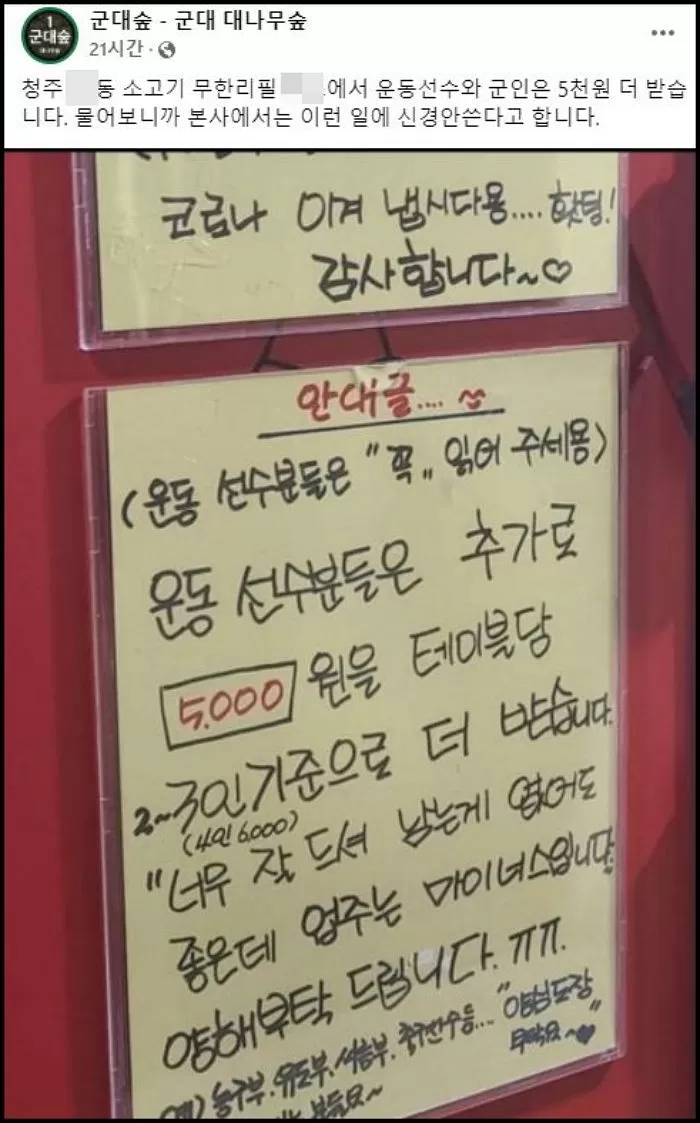 1
군대숲
대나무숲
군대숲 - 군대 대나무숲
21시간 ·
청주 동 소고기 무한리필 에서 운동선수와 군인은 5천원 더 받습
니다. 물어보니까 본사에서는 이런 일에 신경안쓴다고 합니다.
코로나 이겨 냅시다용.... 홧팅!
감사합니다~♡
안내글....
(운동 선수분들은 "꼭" 읽어 주세용)
운동 선수분들은 추가로
5.000 원을 테이블당
2~3인기준으로 더 받습니다.
(4인 6.000)
"너무 잘 드셔 남는게 없어도
좋은데 업주는 마이너스입니다.
양해부탁 드립니다. ㅠㅠ.
예) 농구부. 유도부. 씨름부. 축구선수등... "양심도장"
부탁요~♥
분들요~